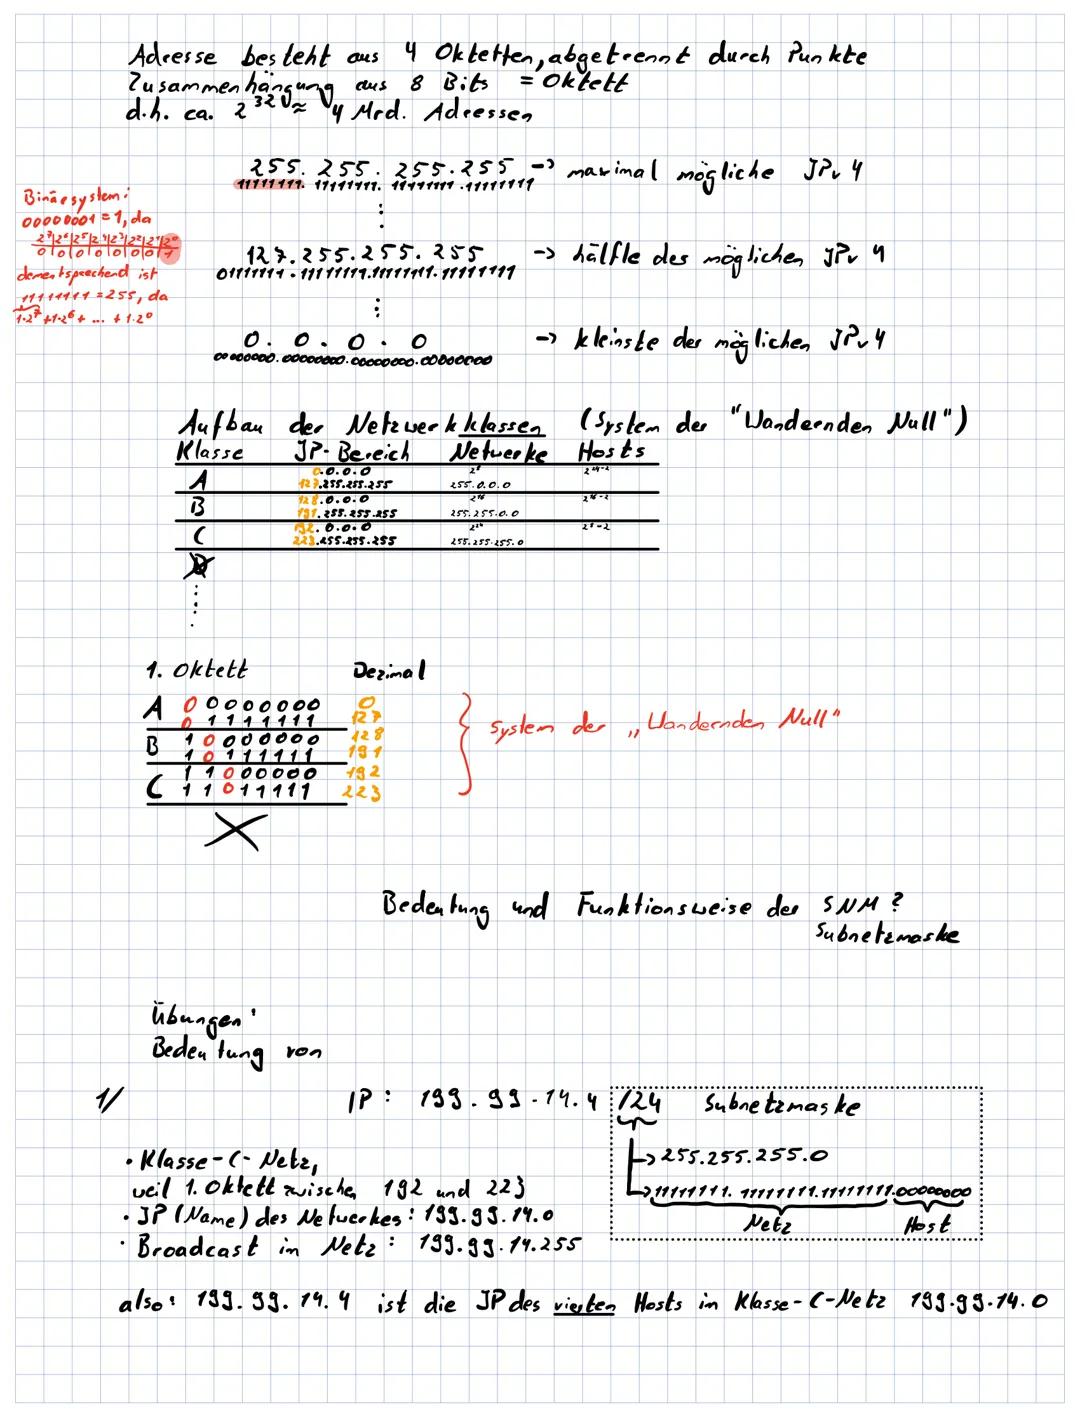 Adresse besteht aus 4 Oktetten, abgetrennt durch Punkte
Zusammenhängung aus 8 Bits = Oktett
d.h. ca. 2^32 ≈ 4 Mrd. Adressen
255. 255. 255.255 -> maximal mögliche IPv4
11111111. 11111111. 11111111.11111111
⋮
Binärsystem:
00000001 = 1, da
2^7|2^6|2^5|2^4|2^3|2^2|2^1|2^0
0|0|0|0|0|0|0|1
dementsprechend ist
11111111 = 255, da
1·2^7 + 1·2^6 + ... + 1·2^0
127.255.255.255 -> hälfte des möglichen IPv4
01111111.11111111.11111111.11111111
⋮
0. 0. 0. 0 -> kleinste der möglichen IPv4
00000000.00000000.00000000.00000000
Aufbau der Netzwerkklassen (System der "Wandernden Null")
Klasse IP-Bereich Netwerke Hosts
0.0.0.0 2^24-2
A 127.255.255.255 255.0.0.0
128.0.0.0 2^16 2^16-2
B 191.255.255.255 255.255.0.0
192.0.0.0 2^8-2
C 223.255.255.255 255.255.255.0
D
1. Oktett Dezimal
A 0 0 0 0 0 0 0 0 0
0 1 1 1 1 1 1 1 127
B 1 0 0 0 0 0 0 0 128
1 0 1 1 1 1 1 1 191
C 1 1 0 0 0 0 0 0 192
1 1 0 1 1 1 1 1 223
System der „Wandernden Null"
Bedeutung und Funktionsweise der SNM?
Subnetzmaske
Übungen:
Bedeutung von
1/ IP: 199.99.14.4 /24 Subnetzmaske
-> 255.255.255.0
-> 11111111. 11111111.11111111.00000000
Netz Host
· Klasse-C-Netz,
weil 1. Oktett zwischen 192 und 223
· IP (Name) des Netwerkes: 199.99.14.0
· Broadcast in Netz: 199.99.14.255
also: 199.99.14.4 ist die IP des vierten Hosts in Klasse-C-Netz 199.99.14.0